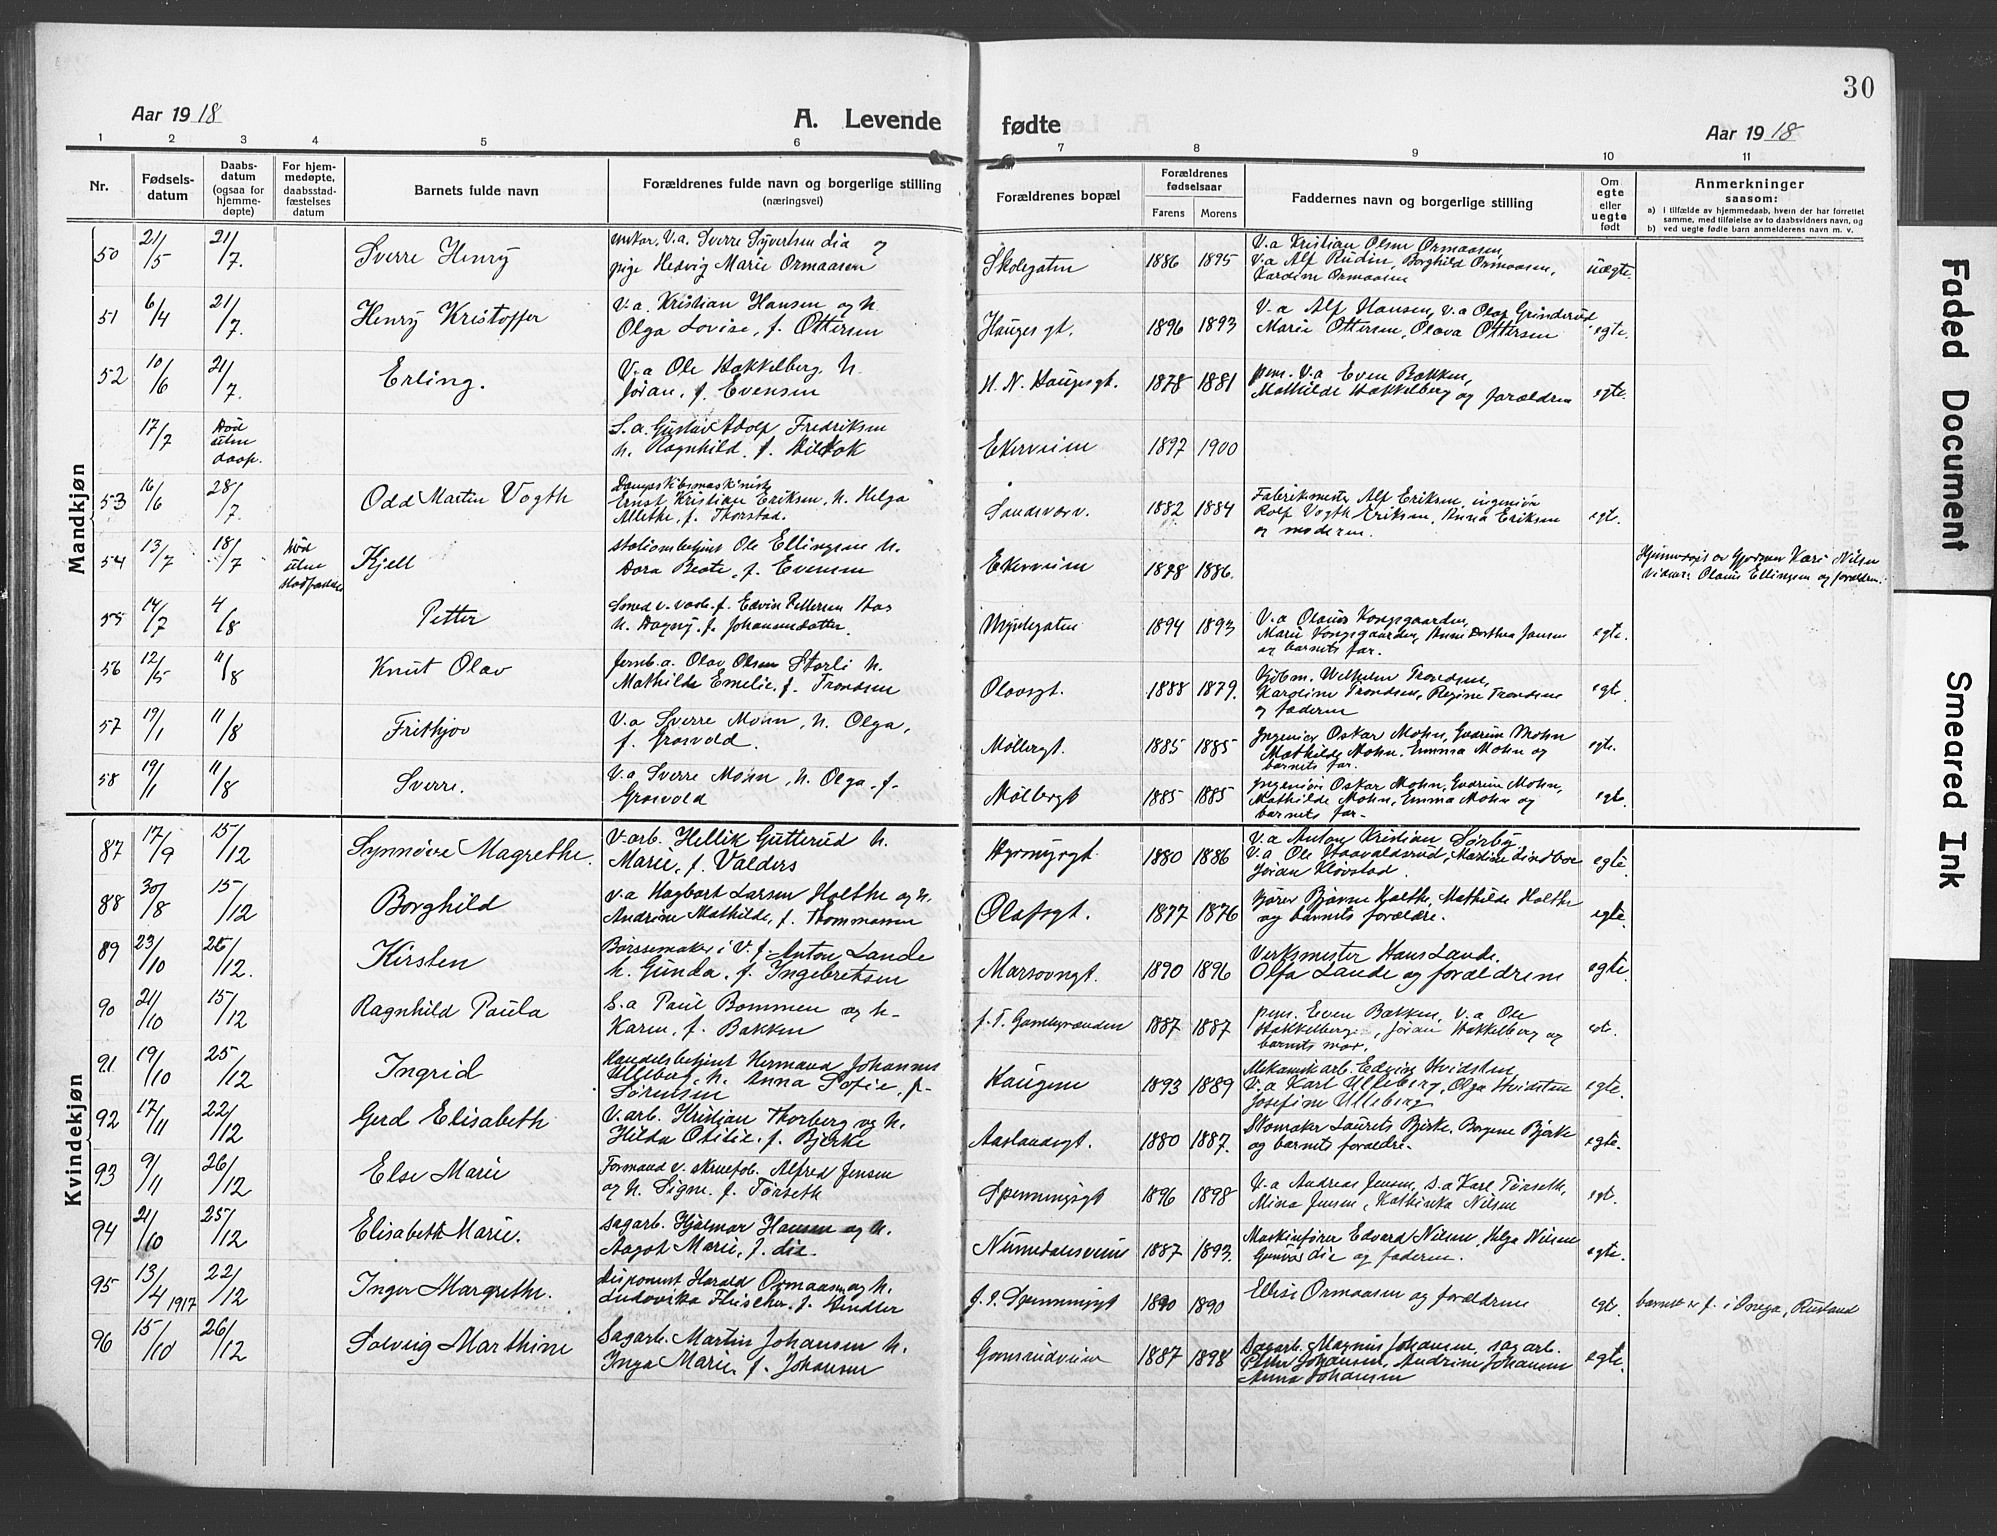 30
Aar 1918
A. Levende fødte
Aar 1918
1 2 3 4 5 6 7 8 9 10 11
Nr.
Fødsels-
datum
Daabs-
datum
(ogsaa for
hjemme-
døpte)
For hjem-
medøpte,
daabsstad-
fæstelses
datum
Barnets fulde navn
Forældrenes fulde navn og borgerlige stilling
(næringsvei)
Forældrenes bopæl
Forældrenes
fødselsaar
Farens Morens
Faddernes navn og borgerlige stilling
Om
egte
eller
uegte
født
Anmerkninger
saasom:
a) i tilfælde av hjemmedaab, hvem der har forrettet
samme, med tilføielse av to daabsvidners navn, og
b) ved uegte fødte barn anmelderens navn m. v.
Mandkjøn
50 21/5 21/7 Sverre Henry
unkar, V.a. Sverre Syvertsen dia og
pige Hedvig Marie Ormaasen
Skolegaten 1886 1895
V.a Kristian Olsen Ormaasen,
V.a Alf Rudin, Borghild Ormaasen,
Kardine Ormaasen
uægte
51 6/4 21/7 Henry Kristoffer
V.a. Kristian Hansen og h.
Olga Lovise, f. Ottersen
Hauges gt. 1896 1893
V.a Alf Hansen, V.a Olaf Grinderud
Marie Ottersen, Olava Ottersen
egte.
52 10/6 21/7 Erling.
V.a Ole Hakkelberg, h.
Jøran, f. Evensen
H. N. Haugesgt. 1878 1881
pens. V.a Even Bakken,
Mathilde Hakkelberg og forældren
egte.
17/7 Død
uten
daap.
S.a. Gustav Adolf Fredriksen
h. Ragnhild. f.
Ekerveien 1897 1900
53 16/6 28/7 Odd Martin Vogth
Dampskibsmaskinist
Ernst Kristian Eriksen, h. Helga
Alethe, f. Thorstad.
Sandsværv. 1882 1884
Fabrikmester Alf Eriksen, ingeniør
Rolf Vogth Eriksen, Anna Eriksen
og moderen.
egte.
54 13/7 18/7 Død
uten
stadfæstelse
Kjell
stationsbetjent Ole Ellingsen h.
Dora Beate, f. Evensen
Ekerveien 1878 1886.
Hjemmedøpt av Gjordmor Kari Nilsen
Vidner: Olaus Ellingsen og forælden.
55 14/7 4/8 Petter
Smed v. vaab.f. Edvin Pettersen Aas
h. Dagny, f. Johannesdatter.
Myntegaten 1894 1893
V.a Olaus Kongsgaarden,
Marie Kongsgaarden, Anne Dorthea Jansen
og barnets far.
egte.
56 12/5 11/8 Knut Olav
Jernb.a. Olav Olsen Storli h.
Mathilde Emelie, f. Trondsen
Olavsgt. 1888 1879.
Gjøbm. Wilhelm Trondsen,
Karoline Trondsen, Regine Trondsen
og faderen
egte.
57 19/1 11/8 Frithjov
V.a Sverre Mohn, h. Olga,
f. Grosvold.
Møllergt. 1885 1885
Ingeniør Oskar Mohn, Gudrun Mohn
Mathilde Mohn, Emma Mohn og
barnets far.
egte.
58 19/1 11/8 Sverre.
V.a Sverre Mohn, h. Olga. f.
Grosvold
Møllergt 1885 1885
Ingeniør Oskar Mohn, Gudrun Mohn,
Mathilde Mohn, Emma Mohn og
barnets far.
egte.
Kvindekjøn
87 17/9 15/12 Synnøve Magrethe.
V.arb. Hellik Gutterud h.
Marie, f. Valders
Hyrnigsgt. 1880 1886
V.a. Anton Kristian Sørby,
V.a Ole Haavaldsrud, Martine Lindboe
Jøran Kløvstad.
egte
88 30/8 15/12 Borghild
V.a Hagbart Larsen Holthe og h.
Andrine Mathilde, f. Thommasen
Olafsgt. 1877 1876
Bjørne Holthe, Mathilde Holthe
og barnets forældre.
egte.
89 23/10 25/12. Kirsten
Børssemaker i V.f. Anton Lande
h. Gunda, f. Ingebretsen
Marsovngt. 1890 1896
Verksmester Hans Lande.
Olfa Lande og forældrene
egte.
90 21/10 15/12 Ragnhild Paula
S.a Paul Bommen og h-
Karen, f. Bakken
f. T. Gamlegrænden 1887 1887
pens. Even Bakken, V.a Ole
Hakkelberg, Jøran Hakkelberg og
barnets mor.
91 19/10 25/12 Ingrid
Handelsbetjent Hermand Johannes
Ulleberg, h. Anna Sofie, f.
Sørensen
Haugene 1893 1889
Mekanikarb. Edvin Hvidsten,
V.a Karl Ulleberg, Olga Hvidsten
Josefine Ulleberg
egte.
92 17/11 22/12 Gerd Elisabeth
V.arb. Kristian Thorberg og h.
Hilda Otilie, f. Bjerke
Aaslandsgt. 1880 1887.
Skomaker Laurets Bjerke, Borgene Bjerke
og barnets forældre.
egte.
93 9/11 26/12 Else Marie
Formand v. skruefab. Alfred Jensen
og h. Signe, f. Tørseth
Spenningsgt 1896 1898
V.a Andreas Jensen, S.a Karl Tørseth,
Mina Jensen, Kathinka Nilsen
egt.
94 21/10 25/12 Elisabeth Marie.
Sagarb. Hjalmar Hansen og h.
Aagot Marie, f. die.
Numedalsveien 1887 1893.
Maskinfører Edvard Nilsen, Helga Nilsen
Gunvor die og faderen.
egte.
95 13/4 1917 22/12 Inger Margrethe.
Disponent Harald Ormaasen og h.
Ludovika Fleischer, f. Hindler
J. I. Spenningsgt 1890 1890
Ellise Ormaasen og forældrene
egt.
barnet er f. i Onega, Rusland
96 15/10 26/12 Solveig Marthine
Sagarb. Martin Johansen h.
Inga Marie, f. Johansen
Gomsrudveien 1887 1898
Sagarb. Magnus Johansen, sagarb.
Peter Johansen, Andrine Johansen
Anna Johansen
egte.
Faded Document
Smeared Ink